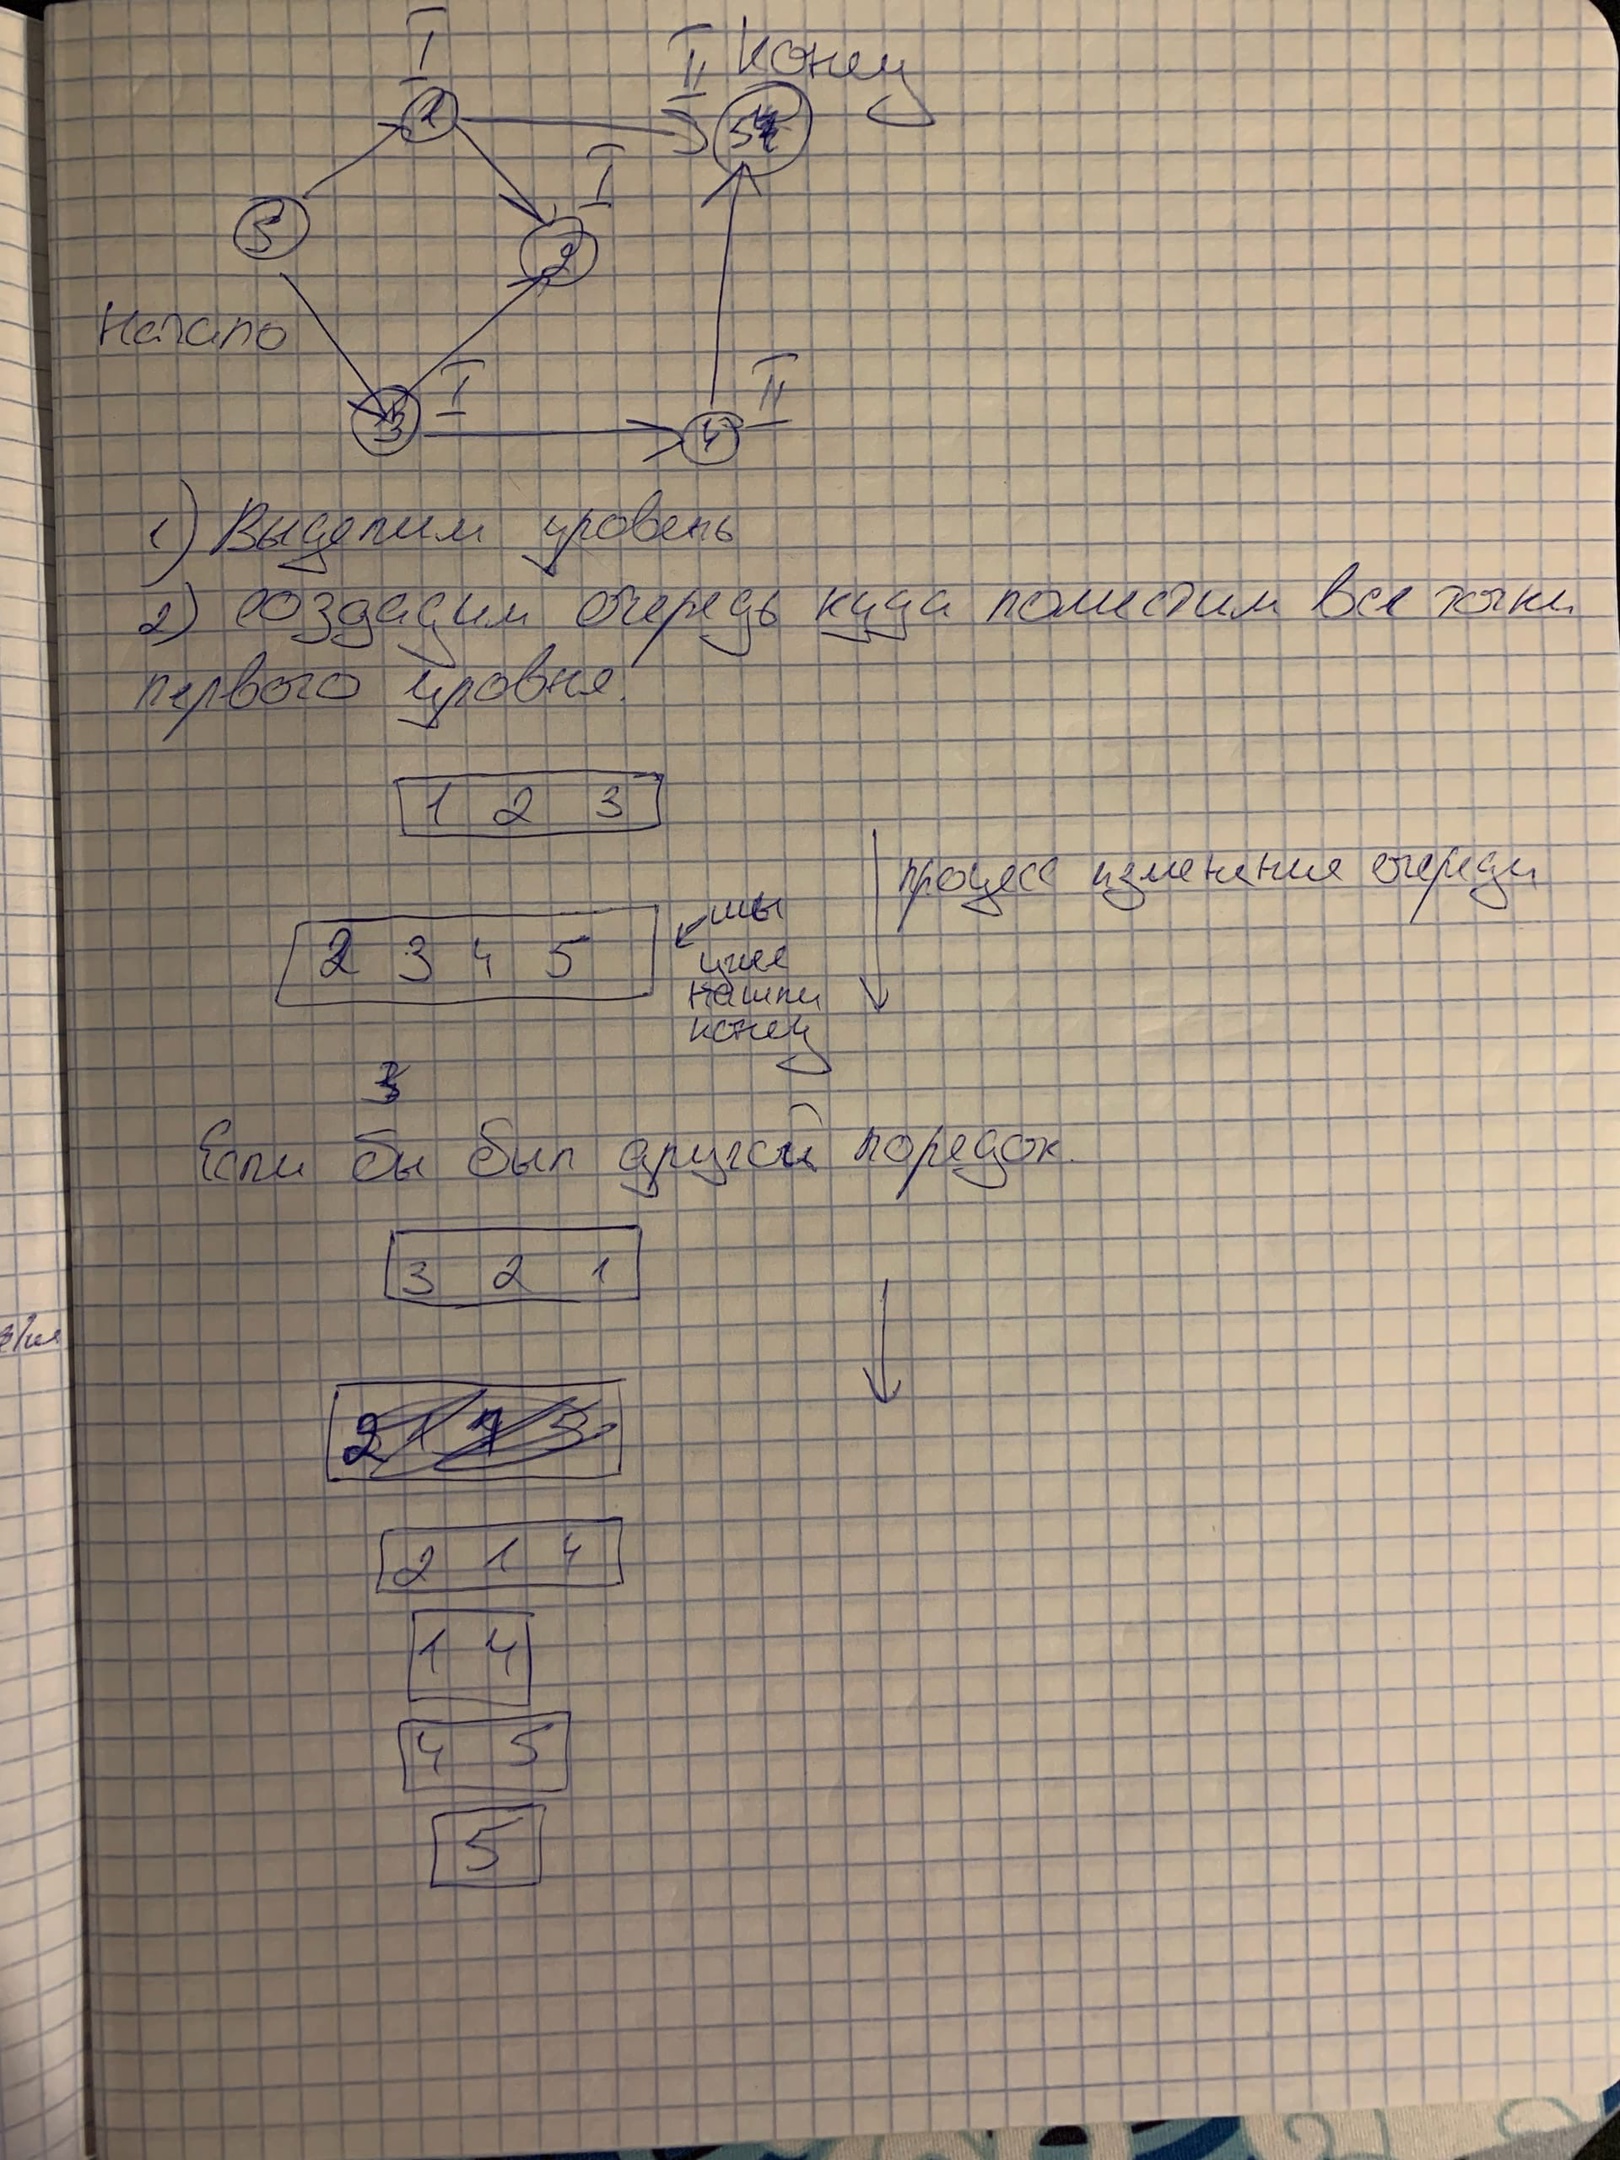 I
II Конец
1
5
I
5
2
Начало
I
II
3
4
1) Выделим уровень
2) создадим очередь куда поместим все точки
первого уровня.
1 2 3
процесс изменения очереди
2 3 4 5
мы
уже
нашли
конец
Если бы был другой порядок.
3 2 1
2 1 4
1 4
4 5
5